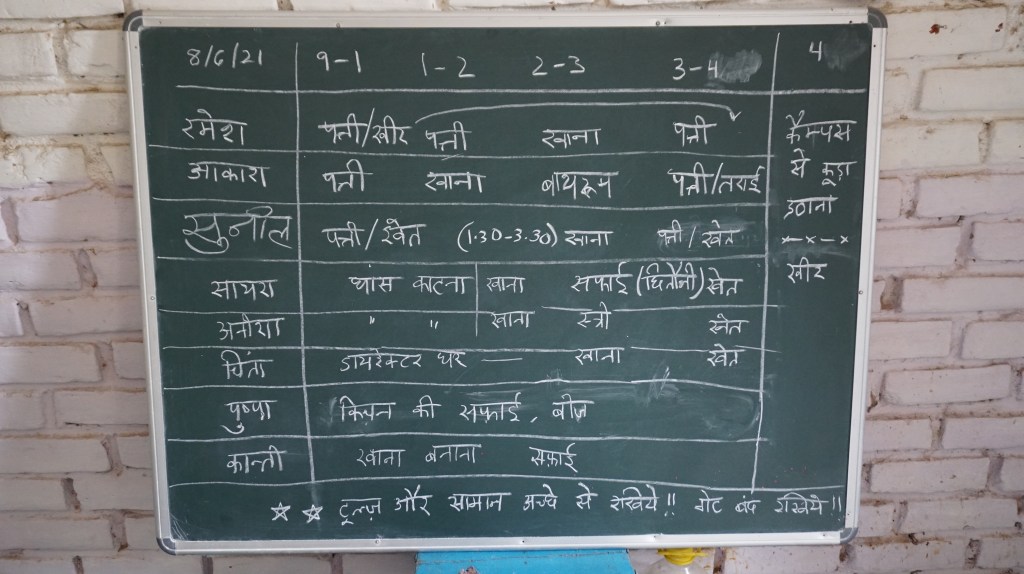 8/6/21 9-1 1-2 2-3 3-4 4
रमेश पत्ती/खीर पत्ती खाना पत्ती कैम्पस
आकाश पत्ती खाना बाथरूम पत्ती/तराई से कूड़ा
उठाना
सुनील पत्ती/खेत (1.30-3.30) खाना पत्ती/खेत -x-x-x
सायरा घांस काटना खाना सफाई (घितौनी) खेत खीर
अनीशा " " खाना स्त्री खेत
चिंता डायरेक्टर घर — खाना खेत
पुष्पा किचन की सफ़ाई, बीज
कान्ती खाना बनाना सफ़ाई
☆ ☆ टूल्ज़ और सामान अच्छे से रखिये!! गेट बंद रखिये!!